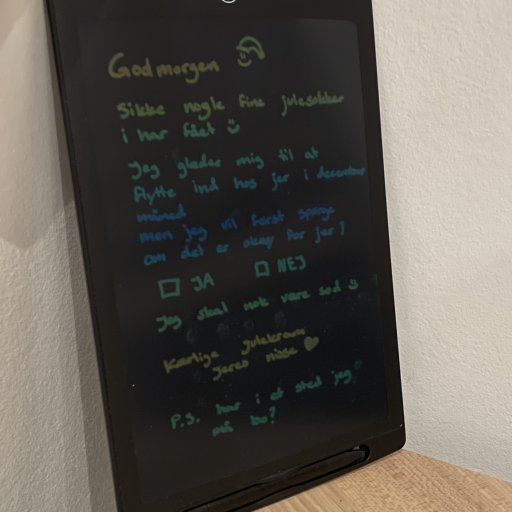 Godmorgen
Sikke nogle fine julesokker
i har fået
Jeg glæder mig til at
flytte ind hos jer i december
måned
men jeg vil først spørge
om det er okay for jer?
JA NEJ
Jeg skal nok være sød
Kærlige julekrammer
Jeres nisse
P.S. har i et sted jeg
må bo?